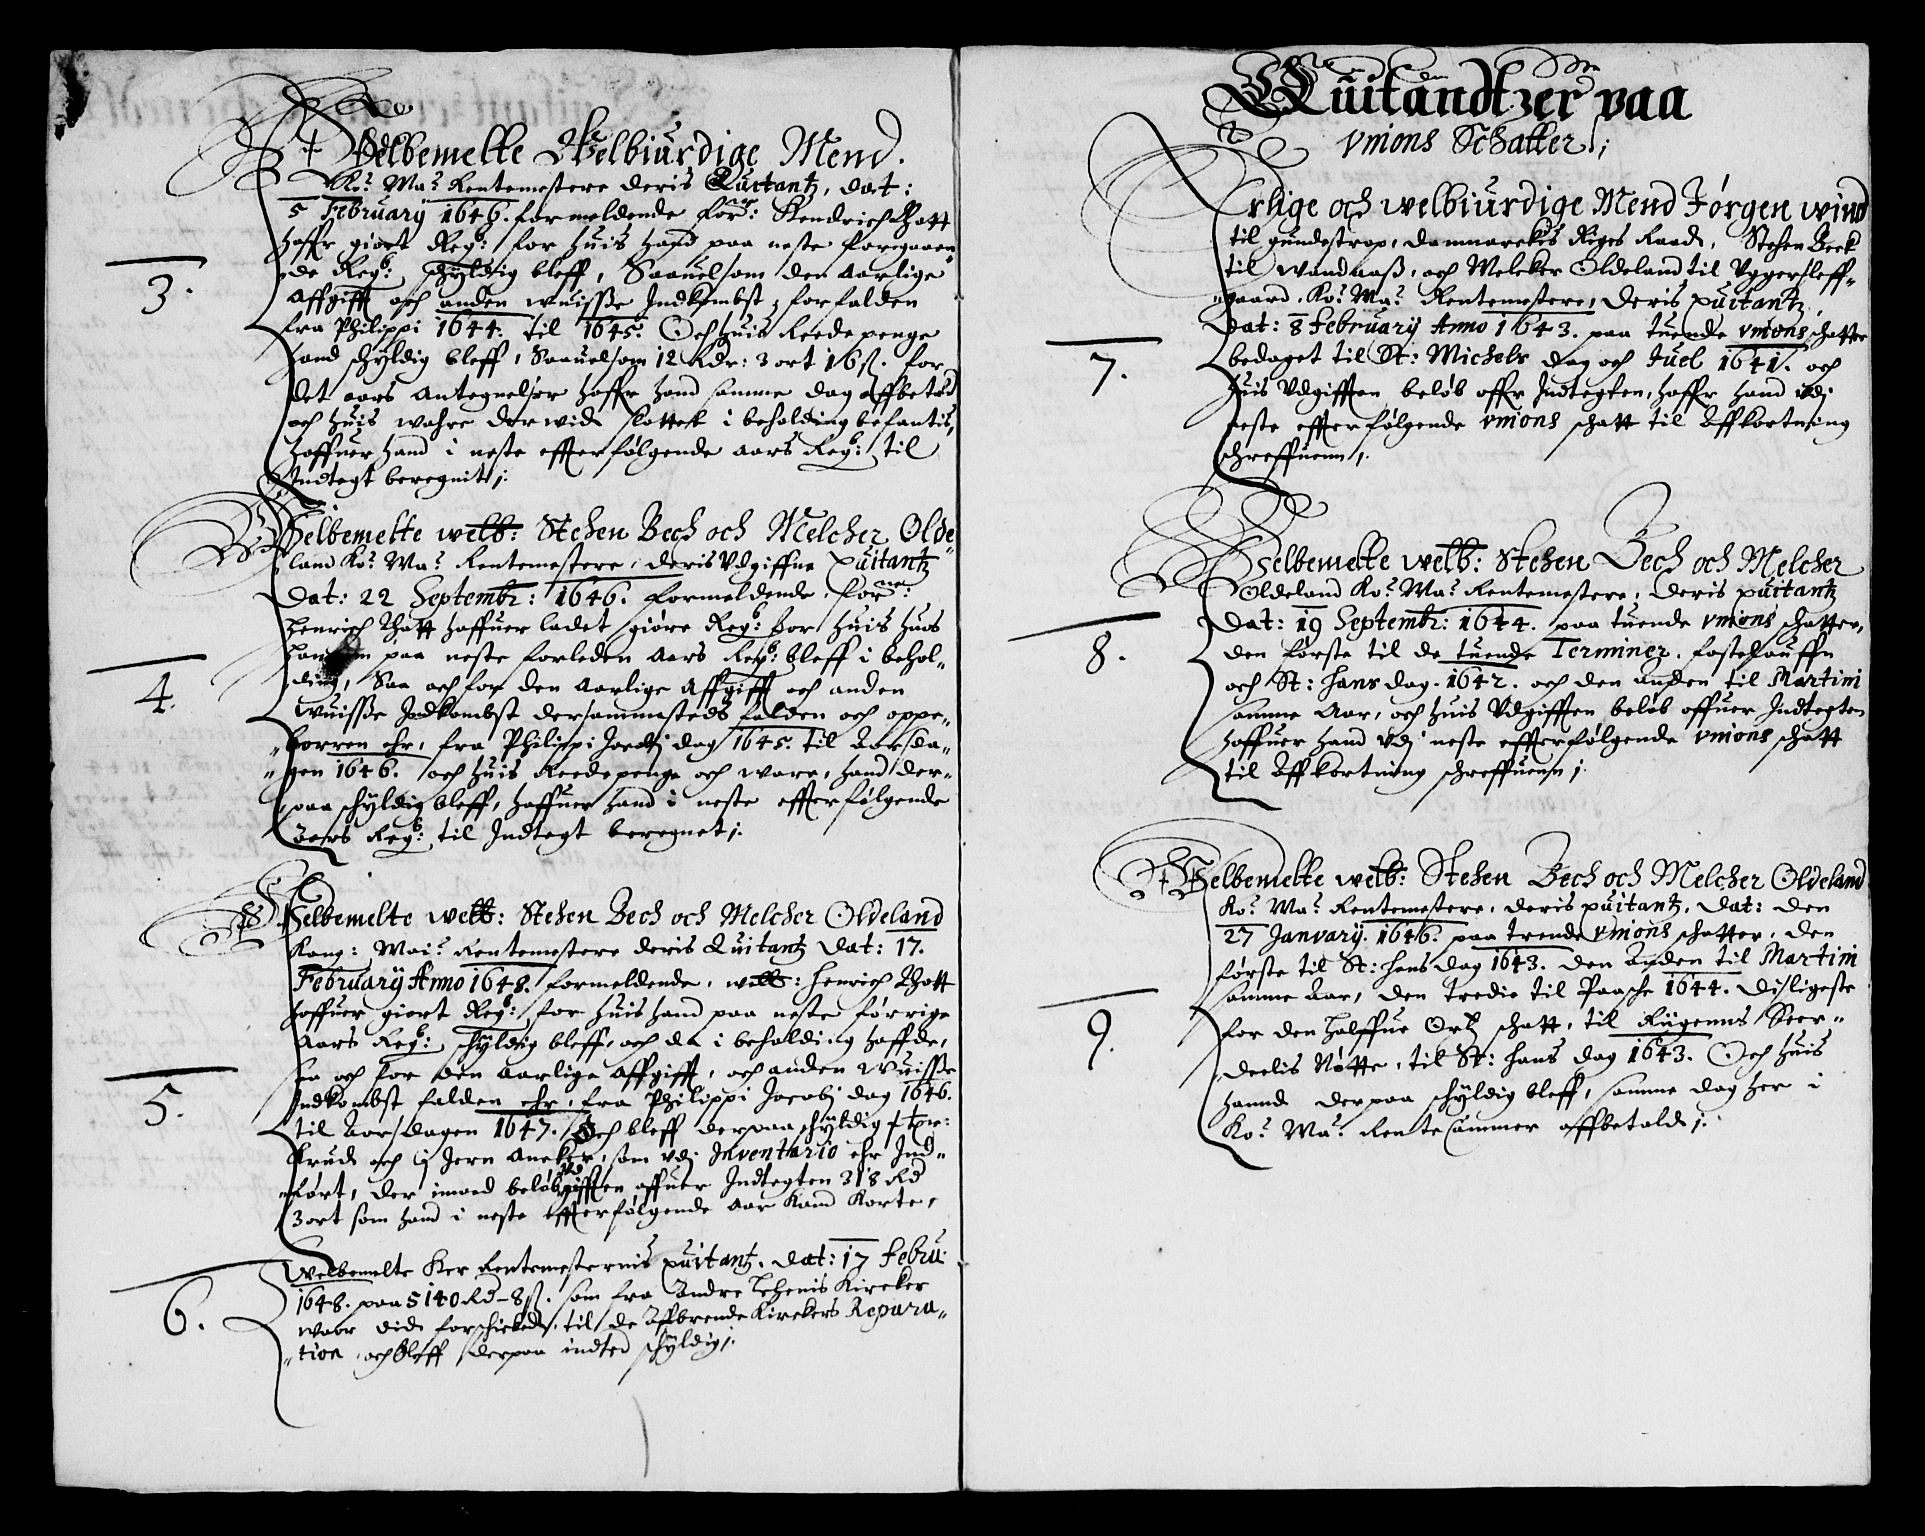 Welbemelte Welbiurdige Mend.
Ko: Ma: Rentemestere deris Quitantz, dat:
5 February 1646. formeldende for:ne Hendrich Thott
haffr giort Regb: for huis hand paa neste foregaaen
de Regb: schyldig bleff, Saauelsom den Aarlige
3.
Affgifft och anden wuisße Indkombst, forfalden
fra Philippi 1644. til 1645. Och huis Reede penge
hand schyldig bleff, Saauelsom 12 Rdr: 3 ort 16 ß. for
det aars Antegnelser haffr hand samme dag affbetald
och huis wahre der wid slottet i beholding befantis,
haffuer hand i neste effterfølgende aars Regb: til
Indtegt beregnit ;.
Velbemelte welb: Stehen Bech och Melcher Olde
land Ko: Ma: Rentemestere, deris Udgiffne quitantz
Dat: 22 Septembr: 1646. formeldende, for:ne
Henrich Thott haffuer ladet giøre Regb: for huis huos
paa neste forleden Aars Regb: bleff i behol-
4.
ding, Saa och for den Aarlige Affgifft och anden
wuisße Indkombst dersammesteds falden och oppe-
borren ehr, fra Philippi Jacobj dag 1645. til Aarsda-
gen 1646. och huis Reedepenge och ware, hand der-
paa schyldig bleff, haffuer hand i neste effterfølgende
aars Regb: til Indtegt beregnet ;.
Velbemelte welb: Stehen Bech och Melcher Oldeland
Kong: Mai: Rentemestere deris Quitantz Dat: 17.
February Anno 1648. formeldende, welb: Henrich Thott
haffuer giort Regb: for huis hand paa neste forrige
Aars Regb: schyldig bleff, och da i beholding haffde,
saa och for den Aarlige Affgifft, och anden Wuisße
5.
Indkombst falden ehr, fra Philippi Jacobj dag 1646.
til Aarsdagen 1647. Och bleff derpaa schyldig
Krud och Jern Ancker, som udj Inventario ehr Ind-
ført, der imod beløb udgifften offuer Indtegten 318 Rd
3 ort som hand i neste effterfølgende Aar kand korte,
Welbemelte Her Rentemesternis quitantz, dat: 17 Febru:
1648. paa 5140 Rd - 8 ß. som fra Andre Lehenis Kircker
6.
waar did forschicked, til de Affbrende Kirckers Repara-
tion, och bleff derpaa indted schyldig ;.
Quitandtzer paa
Unions Schatter ;
Erlige och welbiurdige Mend Jørgen wind
til gundestrop, danmarckis Riges Raad, Stehen Beck
til Wandaaß, och Melcker Oldeland til Uggersleff-
gaard, Ko: Ma: Rentemestere, deris quitantz,
Dat: 8 February Anno 1643. paa tuende unions schatter
7.
bedaget til St: Michels dag och Juel 1641. och
huis Udgifften beløb offr Indtegten, haffr hand udj
neste effterfølgende unions schatt til Affkortning
schreffuenn ;.
Velbemelte welb: Stehen Bech och Melcher
Oldeland Ko: Ma: Rentemestere, deris quitantz
Dat: 19 Septembr: 1644. paa tuende unions schatter,
8.
den første til de tuende Terminer, fastelauffn
och St: Hans dag. 1642. och den anden til Martini
samme Aar, och huis Udgifften beløb offuer Indtegten
haffuer hand udj neste effterfølgende unions schatt
til Affkortning schreffuenn ;.
Velbemelte welb: Stehen Bech och Melcher Oldeland
Ko: Ma: Rentemestere, deris quitantz, Dat: den
27 January. 1646. paa trende unions schatter, den
første til St: Hans dag 1643. den Anden til Martini
samme Aar, den tredie til Paasche 1644. disligeste
9.
for den halffue Ortz schatt, til Rigenns Beer-
deelis Nøtte, til St: Hans dag 1643. Och huis
hannd derpaa schyldig bleff, samme dag her i
Ko: Ma: Rente Cammer affbetald ;.